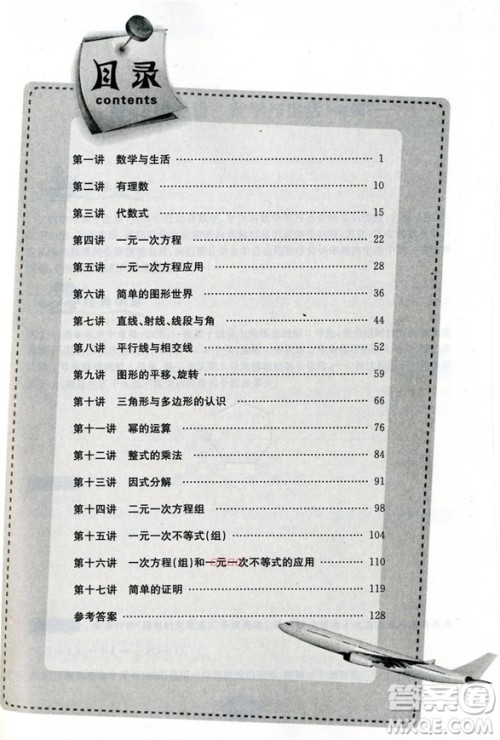 目录
contents
第一讲 数学与生活 …… 1
第二讲 有理数 …… 10
第三讲 代数式 …… 15
第四讲 一元一次方程 …… 22
第五讲 一元一次方程应用 …… 28
第六讲 简单的图形世界 …… 36
第七讲 直线、射线、线段与角 …… 44
第八讲 平行线与相交线 …… 52
第九讲 图形的平移、旋转 …… 59
第十讲 三角形与多边形的认识 …… 66
第十一讲 幂的运算 …… 76
第十二讲 整式的乘法 …… 84
第十三讲 因式分解 …… 91
第十四讲 二元一次方程组 …… 98
第十五讲 一元一次不等式(组) …… 104
第十六讲 一次方程(组)和一元一次不等式的应用 …… 110
第十七讲 简单的证明 …… 119
参考答案 …… 128
答案圈
MXQE.COM